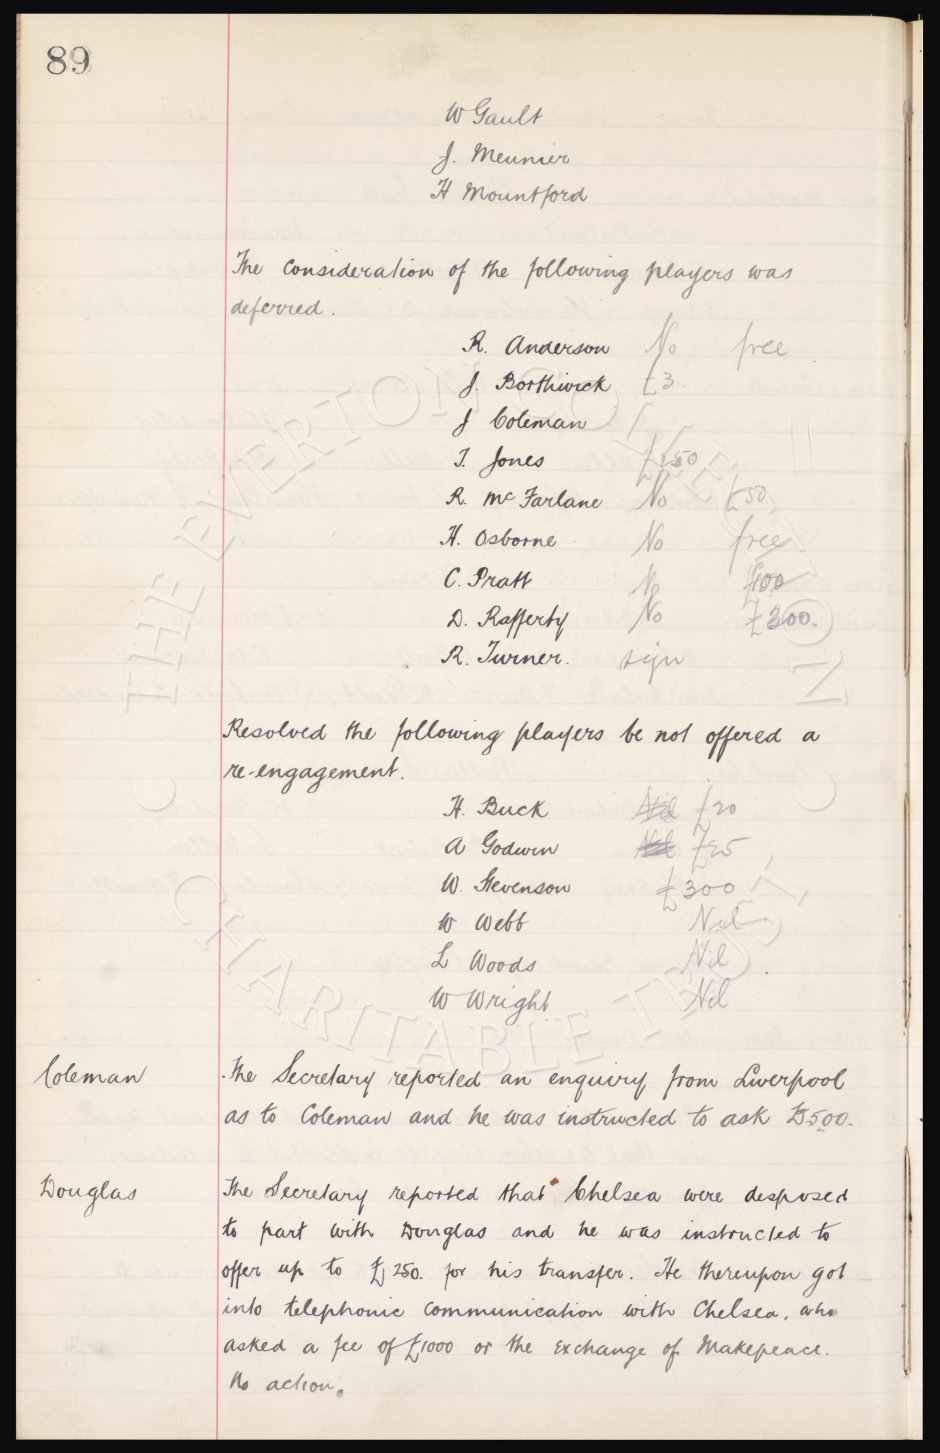 89
W Gault
J. Meunier
H Mountford
The Consideration of the following players was
deferred.
R. Anderson No free
J. Borthwick £3
J Coleman
T. Jones £250
R. McFarlane No £50
H. Osborne No free
C. Pratt No £100
D. Rafferty No £300.
R. Turner. sign
Resolved the following players be not offered a
re-engagement.
H. Buck Nil £20
A Godwin Nil £25
W. Stevenson £300
W Webb Nil
L Woods Nil
W Wright Nil
Coleman The Secretary reported an enquiry from Liverpool
as to Coleman and he was instructed to ask £500.
Douglas The Secretary reported that Chelsea were disposed
to part with Douglas and he was instructed to
offer up to £250. for his transfer. He thereupon got
into telephonic communication with Chelsea, who
asked a fee of £1000 or the exchange of Makepeace.
No action.
THE EVERTON COLLECTION
CHARITABLE TRUST